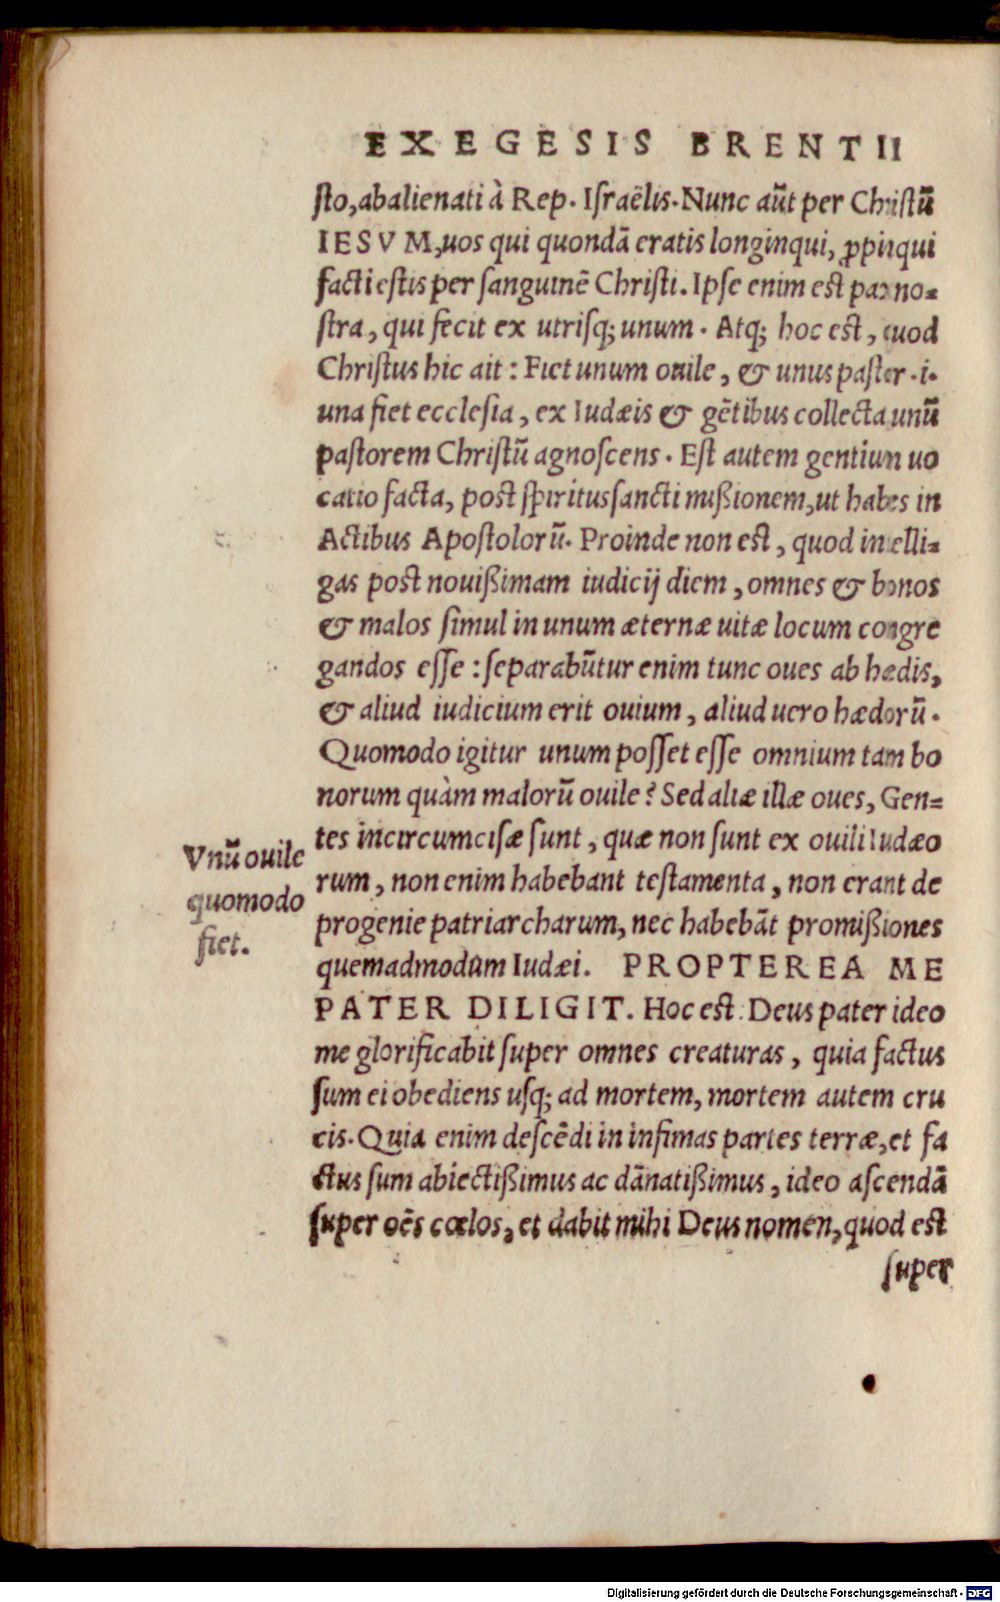 EXEGESIS BRENTII
ſto, abalienati à Rep. Iſraëlis. Nunc aūt per Chriſtū
IESVM, uos qui quondā eratis longinqui, ꝓpinqui
facti eſtis per ſanguinē Chriſti. Ipſe enim eſt pax no=
ſtra, qui fecit ex utriſq; unum. Atq; hoc eſt, quod
Chriſtus hic ait: Fiet unum ouile, & unus paſtor .i.
una fiet eccleſia, ex Iudæis & gētibus collecta unū
paſtorem Chriſtū agnoſcens. Eſt autem gentium uo
catio facta, poſt ſpiritusſancti mißionem, ut habes in
Actibus Apoſtolorū. Proinde non eſt, quod intelli=
gas poſt nouißimam iudicij diem, omnes & bonos
& malos ſimul in unum æternæ uitæ locum congre
gandos eſſe: ſeparabūtur enim tunc oues ab hædis,
& aliud iudicium erit ouium, aliud uero hædorū.
Quomodo igitur unum poſſet eſſe omnium tam bo
norum quàm malorū ouile? Sed aliæ illæ oues, Gen=
tes incircumciſæ ſunt, quæ non ſunt ex ouili Iudæo
rum, non enim habebant teſtamenta, non erant de
progenie patriarcharum, nec habebāt promißiones
quemadmodum Iudæi. PROPTEREA ME
PATER DILIGIT. Hoc eſt: Deus pater ideo
me glorificabit ſuper omnes creaturas, quia factus
ſum ei obediens uſq; ad mortem, mortem autem cru
cis. Quia enim deſcēdi in infimas partes terræ, et fa
ctus ſum abiectißimus ac dānatißimus, ideo aſcendā
ſuper oēs cœlos, et dabit mihi Deus nomen, quod eſt
ſuper
Vnū ouile
quomodo
fiet.
Digitalisierung gefördert durch die Deutsche Forschungsgemeinschaft - DFG